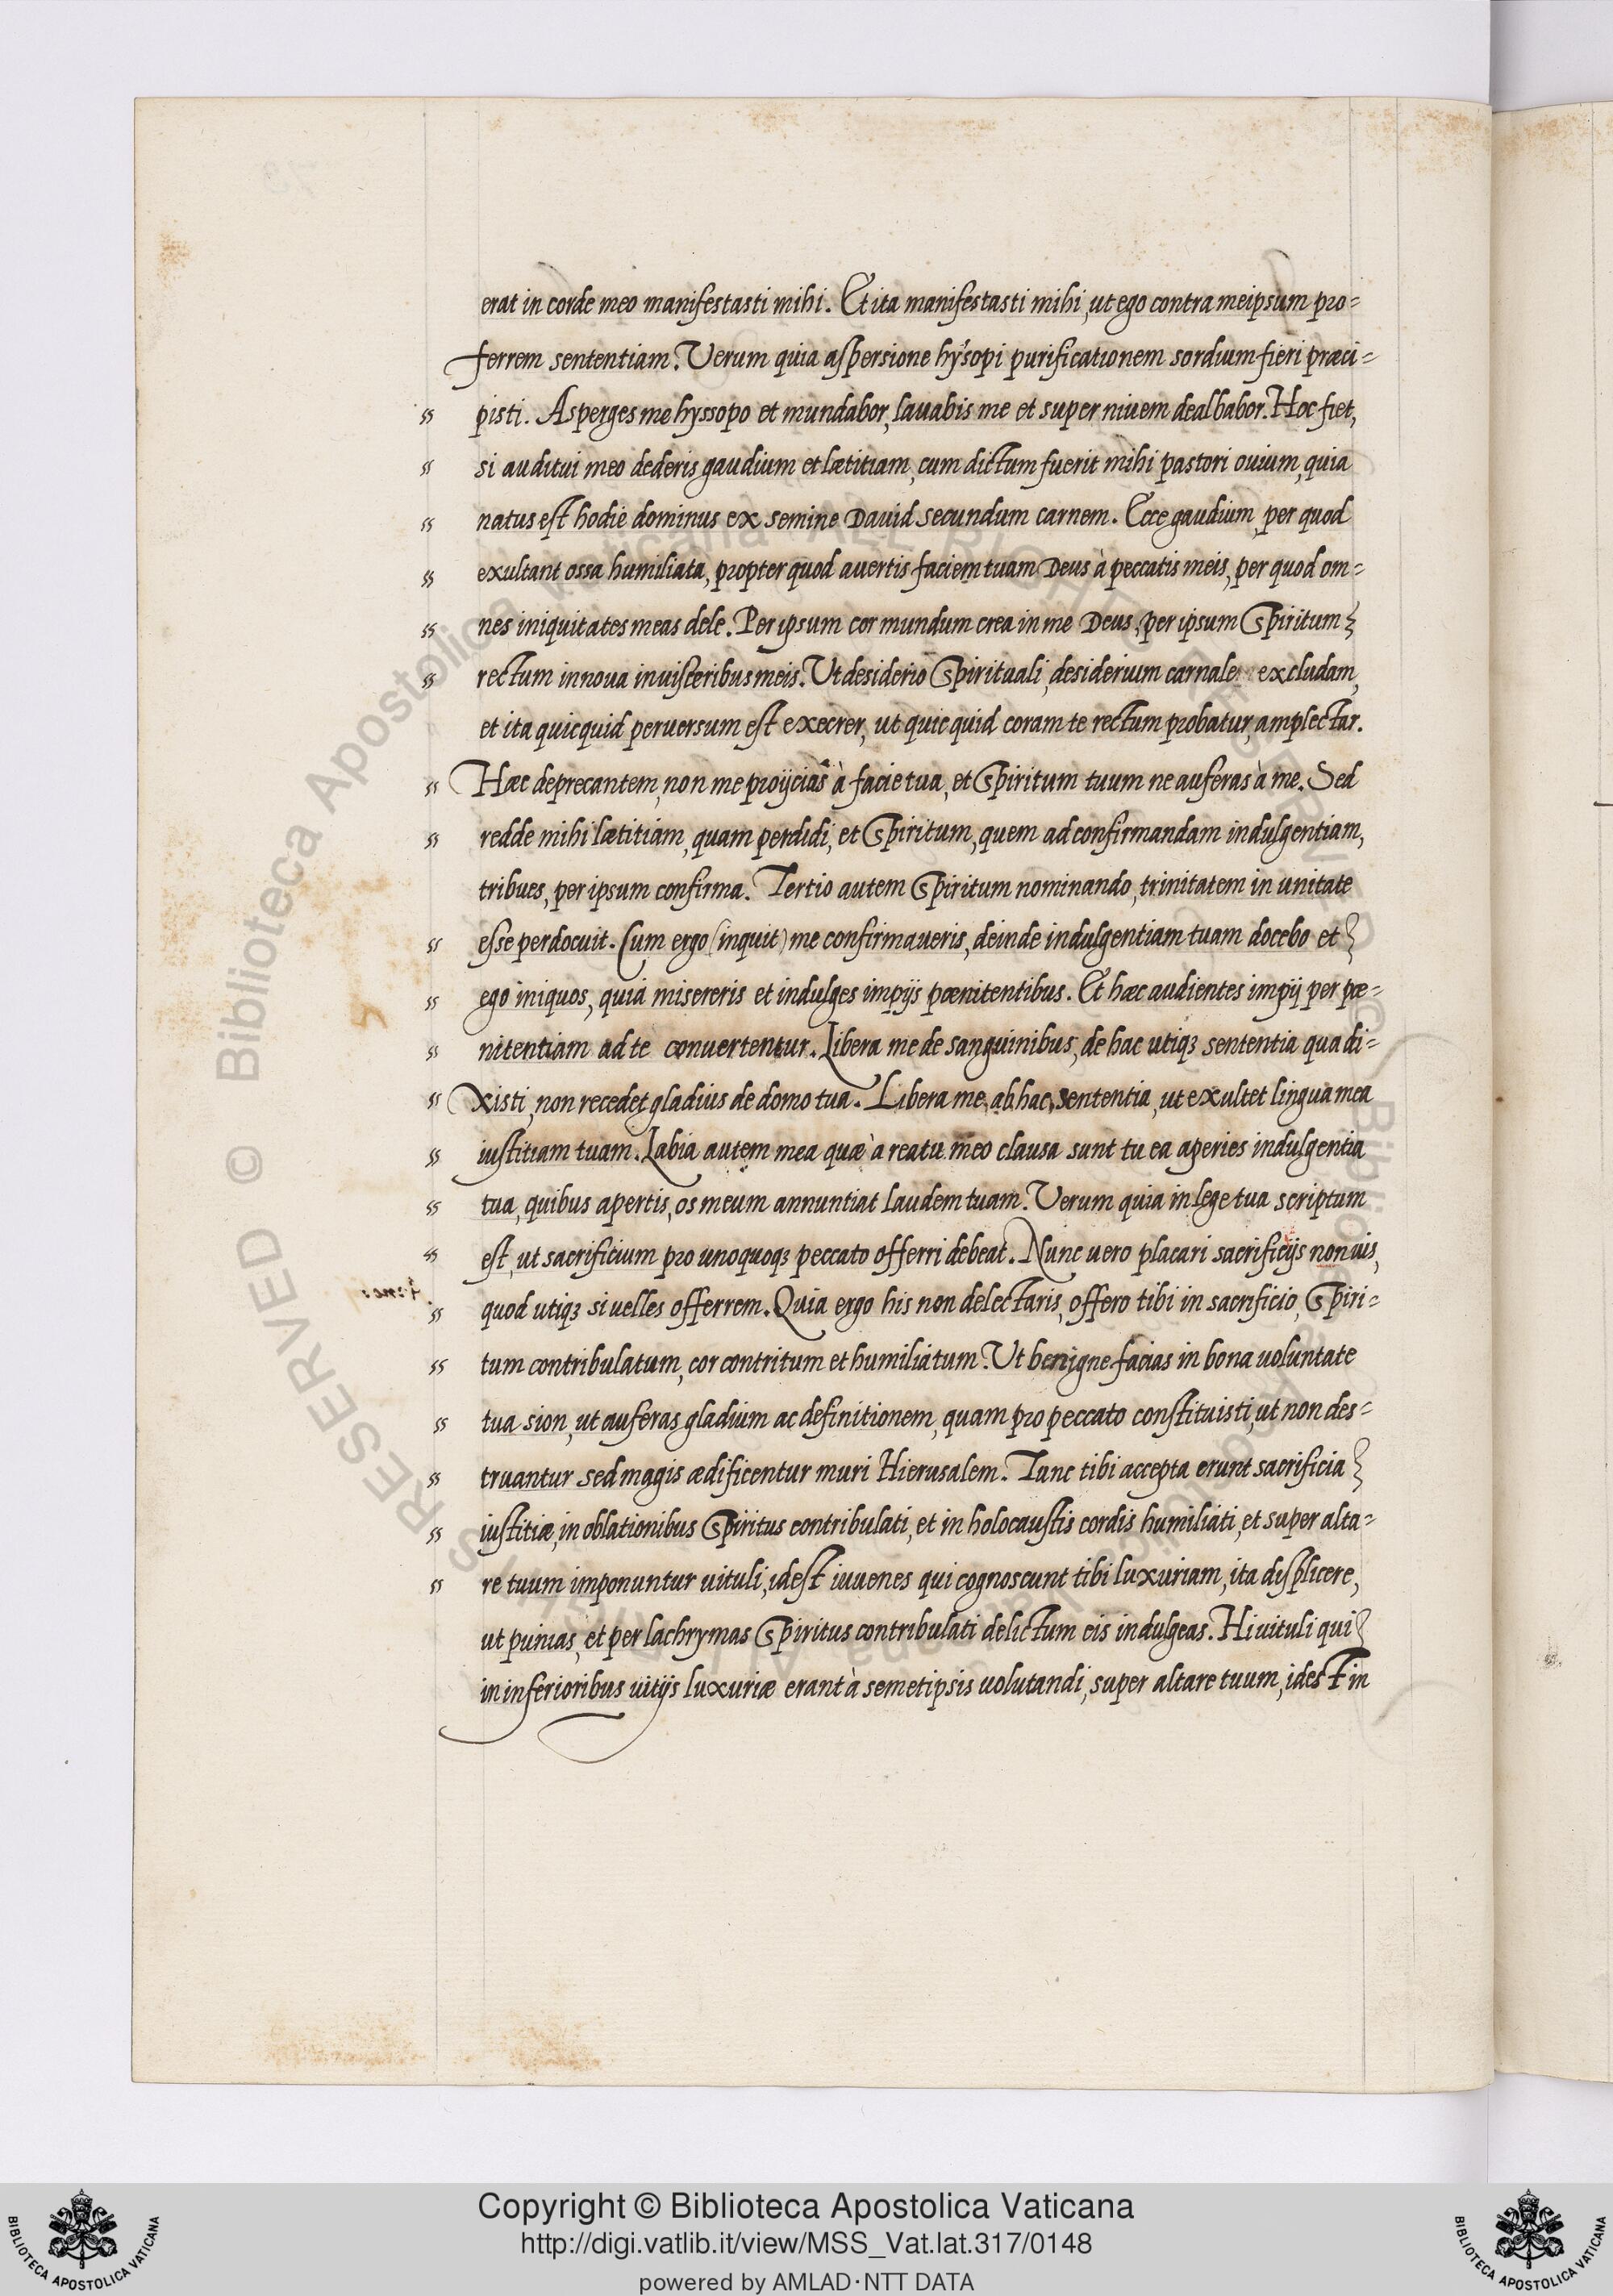 erat in corde meo manifestasti mihi. Et ita manifestasti mihi, ut ego contra meipsum pro=
ferrem sententiam. Verum quia aspersione hysopi purificationem sordium fieri præci=
pisti. Asperges me hyssopo et mundabor, lavabis me et super nivem dealbabor. Hoc fiet,
si auditui meo dederis gaudium et lætitiam, cum dictum fuerit mihi pastori ovium, quia
natus est hodie dominus ex semine David secundum carnem. Ecce gaudium, per quod
exultant ossa humiliata, propter quod avertis faciem tuam Deus à peccatis meis, per quod om=
nes iniquitates meas dele. Per ipsum cor mundum crea in me Deus, per ipsum Spiritum
rectum innova in visceribus meis. Ut desiderio Spirituali, desiderium carnale excludam,
et ita quicquid perversum est execrer, ut quicquid coram te rectum probatur, amplectar.
Hæc deprecantem, non me proijcias à facie tua, et Spiritum tuum ne auferas à me. Sed
redde mihi lætitiam, quam perdidi, et Spiritum, quem ad confirmandam indulgentiam,
tribues, per ipsum confirma. Tertio autem Spiritum nominando, trinitatem in unitate
esse perdocuit. Cum ergo (inquit) me confirmaveris, deinde indulgentiam tuam docebo et
ego iniquos, quia misereris et indulges impijs pœnitentibus. Et hæc audientes impij per pœ=
nitentiam ad te convertentur. Libera me de sanguinibus, de hac utiqꝫ sententia qua di=
xisti, non recedet gladius de domo tua. Libera me, ab hac, sententia, ut exultet lingua mea
iustitiam tuam. Labia autem mea quæ à reatu meo clausa sunt tu ea aperies indulgentia
tua, quibus apertis, os meum annuntiat laudem tuam. Verum quia in lege tua scriptum
est, ut sacrificium pro unoquoqꝫ peccato offerri debeat. Nunc vero placari sacrificijs non vis,
quod utiqꝫ si velles offerrem. Quia ergo his non delectaris, offero tibi in sacrificio, Spiri=
tum contribulatum, cor contritum et humiliatum. Ut benigne facias in bona voluntate
tua sion, ut auferas gladium ac definitionem, quam pro peccato constituisti, ut non des=
truantur sed magis ædificentur muri Hierusalem. Tunc tibi accepta erunt sacrificia
iustitiæ, in oblationibus Spiritus contribulati, et in holocaustis cordis humiliati, et super alta=
re tuum imponuntur vituli, idest iuvenes qui cognoscunt tibi luxuriam, ita displicere,
ut punias, et per lachrymas Spiritus contribulati delictum eis indulgeas. Hi vituli qui
in inferioribus vitijs luxuriæ erant à semetipsis volutandi, super altare tuum, idest in
© Biblioteca Apostolica Vaticana ALL RIGHTS RESERVED
Copyright © Biblioteca Apostolica Vaticana
http://digi.vatlib.it/view/MSS_Vat.lat.317/0148
powered by AMLAD·NTT DATA
BIBLIOTECA APOSTOLICA VATICANA
BIBLIOTECA APOSTOLICA VATICANA